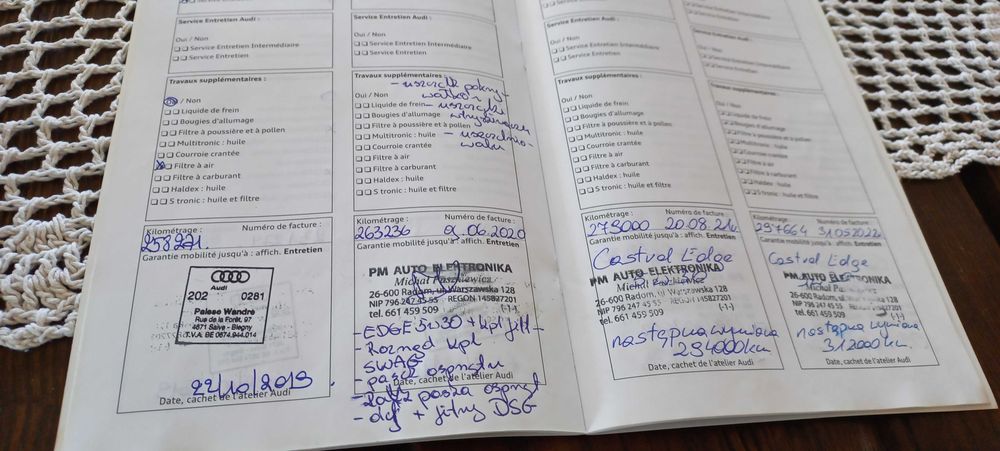 Service Entretien Audi :
Oui / Non
Service Entretien Intermédiaire
Service Entretien
Travaux supplémentaires :
/ Non
Liquide de frein
Bougies d'allumage
Filtre à poussière et à pollen
Multitronic : huile
Courroie crantée
Filtre à air
Filtre à carburant
Haldex : huile
S tronic : huile et filtre
Kilométrage : Numéro de facture :
258271.
Garantie mobilité jusqu'à : affich. Entretien
Audi
202 0281
Palese Wandre
Rue de la Forêt, 97
4671 Saive - Blegny
T.V.A. BE 0874.944.014
22/10/2019
Date, cachet de l'atelier Audi
Service Entretien Audi :
Oui / Non
Service Entretien Intermédiaire
Service Entretien
Travaux supplémentaires
- uszczelk pokrywy
Oui / Non
Liquide de frein
Bougies d'allumage
Filtre à poussière et à pollen
Multitronic : huile
Courroie crantée
Filtre à air
Filtre à carburant
Haldex : huile
S tronic : huile et filtre
Kilométrage : Numéro de facture :
263236 9.06.2020
Garantie mobilité jusqu'à : affich. Entretien
PM AUTO ELEKTRONIKA
Michał Paszkiewicz
26-600 Radom, ul. Warszawska 128
NIP 796 247 45 55 REGON 145827201
tel. 661 459 509 (-1-)
- EDGE 5w30 + kpl filt -
- Rozrząd kpl
SWAG
- pasek osprzętu
Date, cachet de l'atelier Audi
DSG
Service Entretien Audi :
Oui / Non
Service Entretien Intermédiaire
Service Entretien
Travaux supplémentaires :
Oui / Non
Liquide de frein
Bougies d'allumage
Filtre à poussière et à pollen
Multitronic : huile
Courroie crantée
Filtre à air
Filtre à carburant
Haldex : huile
S tronic : huile et filtre
Kilométrage : Numéro de facture :
279000 20.08.21r.
Garantie mobilité jusqu'à : affich. Entretien
Castrol Edge
PM AUTO ELEKTRONIKA
Michał Paszkiewicz
26-600 Radom, ul. Warszawska 128
NIP 796 247 45 55 REGON 145827201
tel. 661 459 509 (-1-)
następna wymiana
294000km
Date, cachet de l'atelier Audi
Service Entretien Audi :
Oui / Non
Service Entretien Intermédiaire
Service Entretien
Travaux supplémentaires :
Oui / Non
Liquide de frein
Bougies d'allumage
Filtre à poussière et à pollen
Multitronic : huile
Courroie crantée
Filtre à air
Filtre à carburant
Haldex : huile
S tronic : huile et filtre
Kilométrage : Numéro de facture :
297664 31.05.2022
Garantie mobilité jusqu'à : affich. Entretien
Castrol Edge
PM AUTO ELEKTRONIKA
Michał Paszkiewicz
26-600 Radom, ul. Warszawska 128
NIP 796 247 45 55 REGON 145827201
tel. 661 459 509 (-1-)
następna wymiana
312000km
Date, cachet de l'atelier Audi